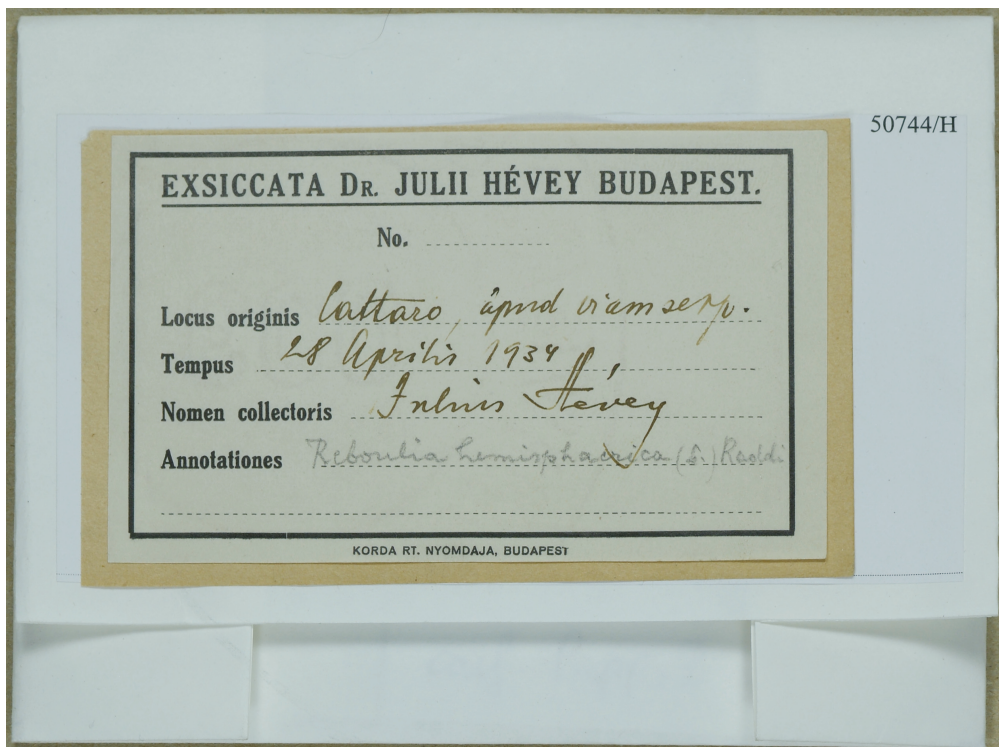 50744/H
EXSICCATA DR. JULII HÉVEY BUDAPEST.
No.
Locus originis Cattaro, apud viam serp.
Tempus 28 Aprilis 1934
Nomen collectoris Julius Hévey
Annotationes Reboulia hemisphaerica (L.) Raddi
KORDA RT. NYOMDAJA, BUDAPEST